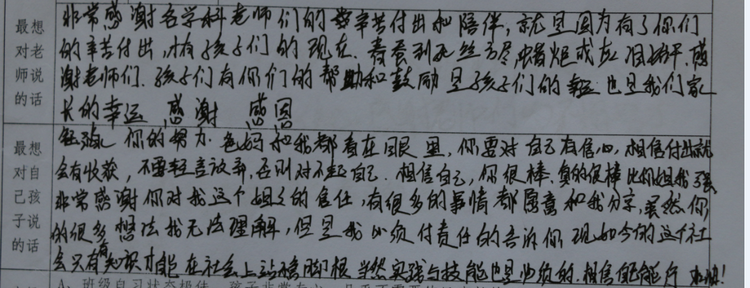 最想对老师说的话
非常感谢各学科老师们的辛苦付出和陪伴，就是因为有了你们
的辛苦付出，才有孩子们的现在，春蚕到死丝方尽，蜡炬成灰泪始干，感
谢老师们，孩子们有你们的帮助和鼓励是孩子们的幸运也是我们家
长的幸运 感谢 感恩
最想对自己孩子说的话
你的努力，爸妈和我都看在眼里，你要对自己有信心，相信付出就
会有收获，不要轻言放弃，否则对不起自己，相信自己，你很棒，真的很棒比你姐我强
非常感谢你对我这个姐姐的信任，有很多的事情都愿意和我分享，虽然你
的很多想法我无法理解，但是我必须付责任的告诉你现如今的这个社
会只有知识才能在社会上站稳脚根，当然实践与技能也是必须的，相信自己能行 加油！
班级自习状态极佳，孩子非常